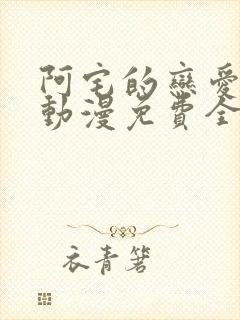 阿宅的戀愛
動漫免費全
衣青箬